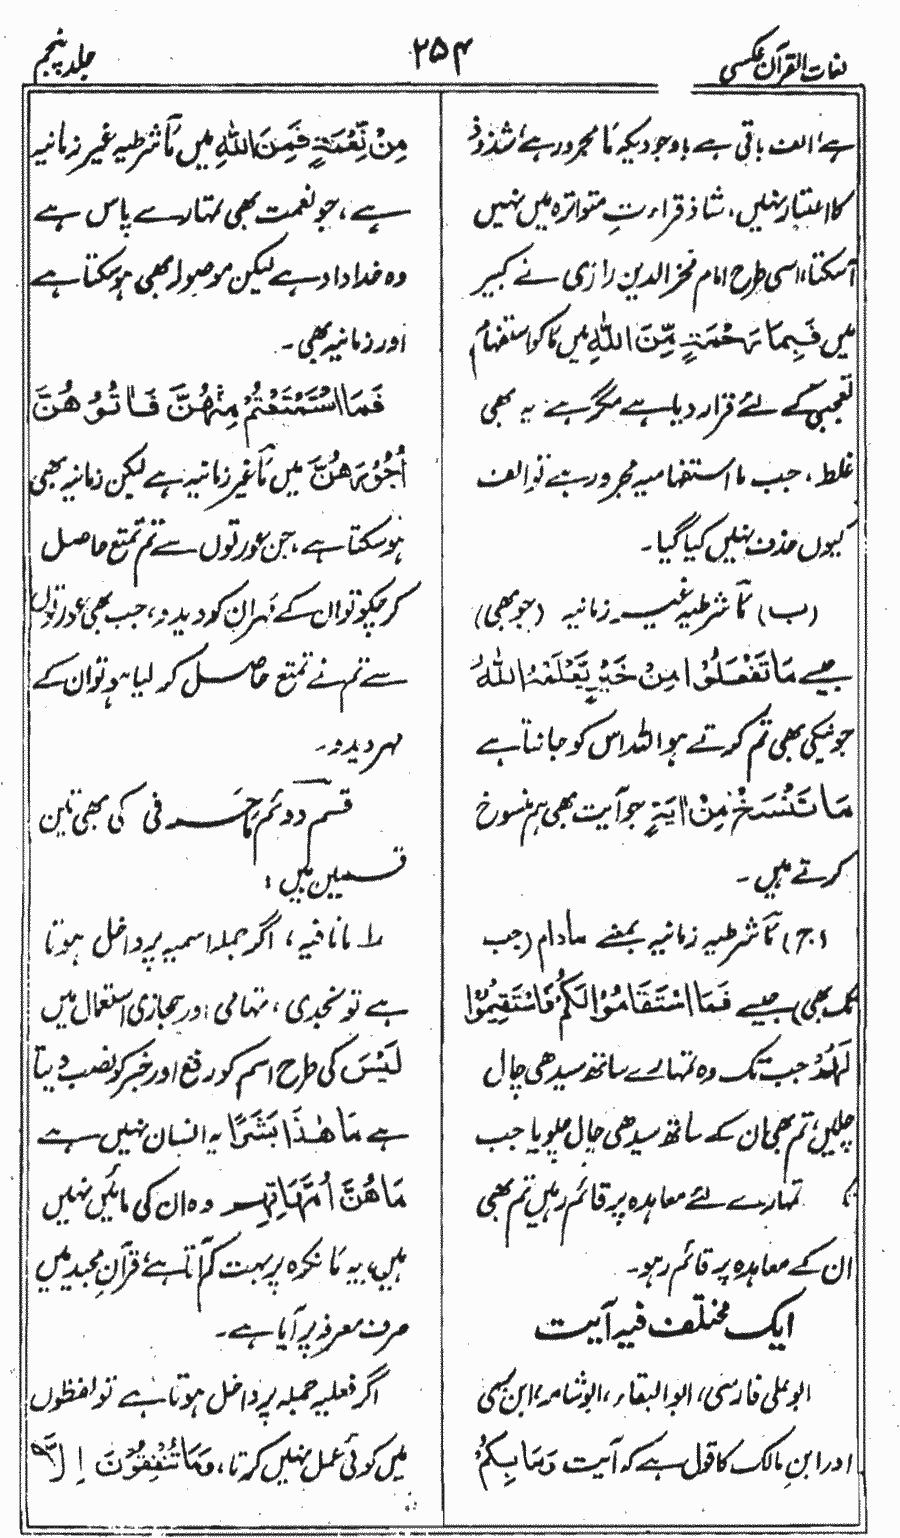 لغات القرآن عکسی
۲۵۴
جلد پنجم
ہے، الف باقی ہے باوجودیکہ مَا مجرور ہے، شذوذ
کا اعتبار نہیں، شاذ قراءت متواترہ میں نہیں
آسکتا، اسی طرح امام فخر الدین رازی نے کبیر
میں فَبِمَا رَحْمَةٍ مِّنَ اللّٰهِ میں مَا کو استفہام
تعجبی کے لئے قرار دیا ہے مگر ہے یہ بھی
غلط، جب ما استفہامیہ مجرور ہے تو الف
کیوں حذف نہیں کیا گیا۔
(ب) مَا شرطیہ غیر زمانیہ (جو بھی)
جیسے مَا تَفْعَلُوْا مِنْ خَيْرٍ يَّعْلَمْهُ اللّٰهُ
جو نیکی بھی تم کرتے ہو اللہ اس کو جانتا ہے
مَا نَنْسَخْ مِنْ اٰيَةٍ جو آیت بھی ہم منسوخ
کرتے ہیں۔
(ج) مَا شرطیہ زمانیہ بمعنے مادام (جب
تک بھی) جیسے فَمَا اسْتَقَامُوْا لَكُمْ فَاسْتَقِيْمُوْا
لَهُمْ جب تک وہ تمہارے ساتھ سیدھی چال
چلیں تم بھی ان کے ساتھ سیدھی چال چلو یا جب
تک تمہارے لئے معاہدہ پر قائم رہیں تم بھی
ان کے معاہدہ پر قائم رہو۔
ایک مختلف فیہ آیت
ابوعلی فارسی، ابوالبقاء، ابوشامہ، ابن بری
اور ابن مالک کا قول ہے کہ آیت وَمَا بِكُمْ
مِنْ نِّعْمَةٍ فَمِنَ اللّٰهِ میں مَا شرطیہ غیر زمانیہ
ہے، جو نعمت بھی تمہارے پاس ہے
وہ خداداد ہے لیکن موصولہ بھی ہوسکتا ہے
اور زمانیہ بھی۔
فَمَا اسْتَمْتَعْتُمْ مِنْهُنَّ فَاٰتُوْهُنَّ
اُجُوْرَهُنَّ میں مَا غیر زمانیہ ہے لیکن زمانیہ بھی
ہوسکتا ہے، جن عورتوں سے تم تمتع حاصل
کرچکو تو ان کے مہر ان کو دیدو، جب بھی عورتوں
سے تم نے تمتع حاصل کر لیا ہو تو ان کے
مہر دیدو۔
قسم دوئم مَا حرفی کی بھی تین
قسمیں ہیں:
۱۔ ما نافیہ، اگر جملہ اسمیہ پر داخل ہوتا
ہے تو نجدی، تہامی اور حجازی استعمال میں
لَيْسَ کی طرح اسم کو رفع اور خبر کو نصب دیتا
ہے مَا هٰذَا بَشَرًا یہ انسان نہیں ہے
مَا هُنَّ اُمَّهَاتِهِمْ وہ ان کی مائیں نہیں
ہیں، یہ مَا نکرہ پر بہت کم آتا ہے، قرآن مجید میں
صرف معرفہ پر آیا ہے۔
اگر فعلیہ جملہ پر داخل ہوتا ہے تو لفظوں
میں کوئی عمل نہیں کرتا، وَمَا تُنْفِقُوْنَ اِلَّا